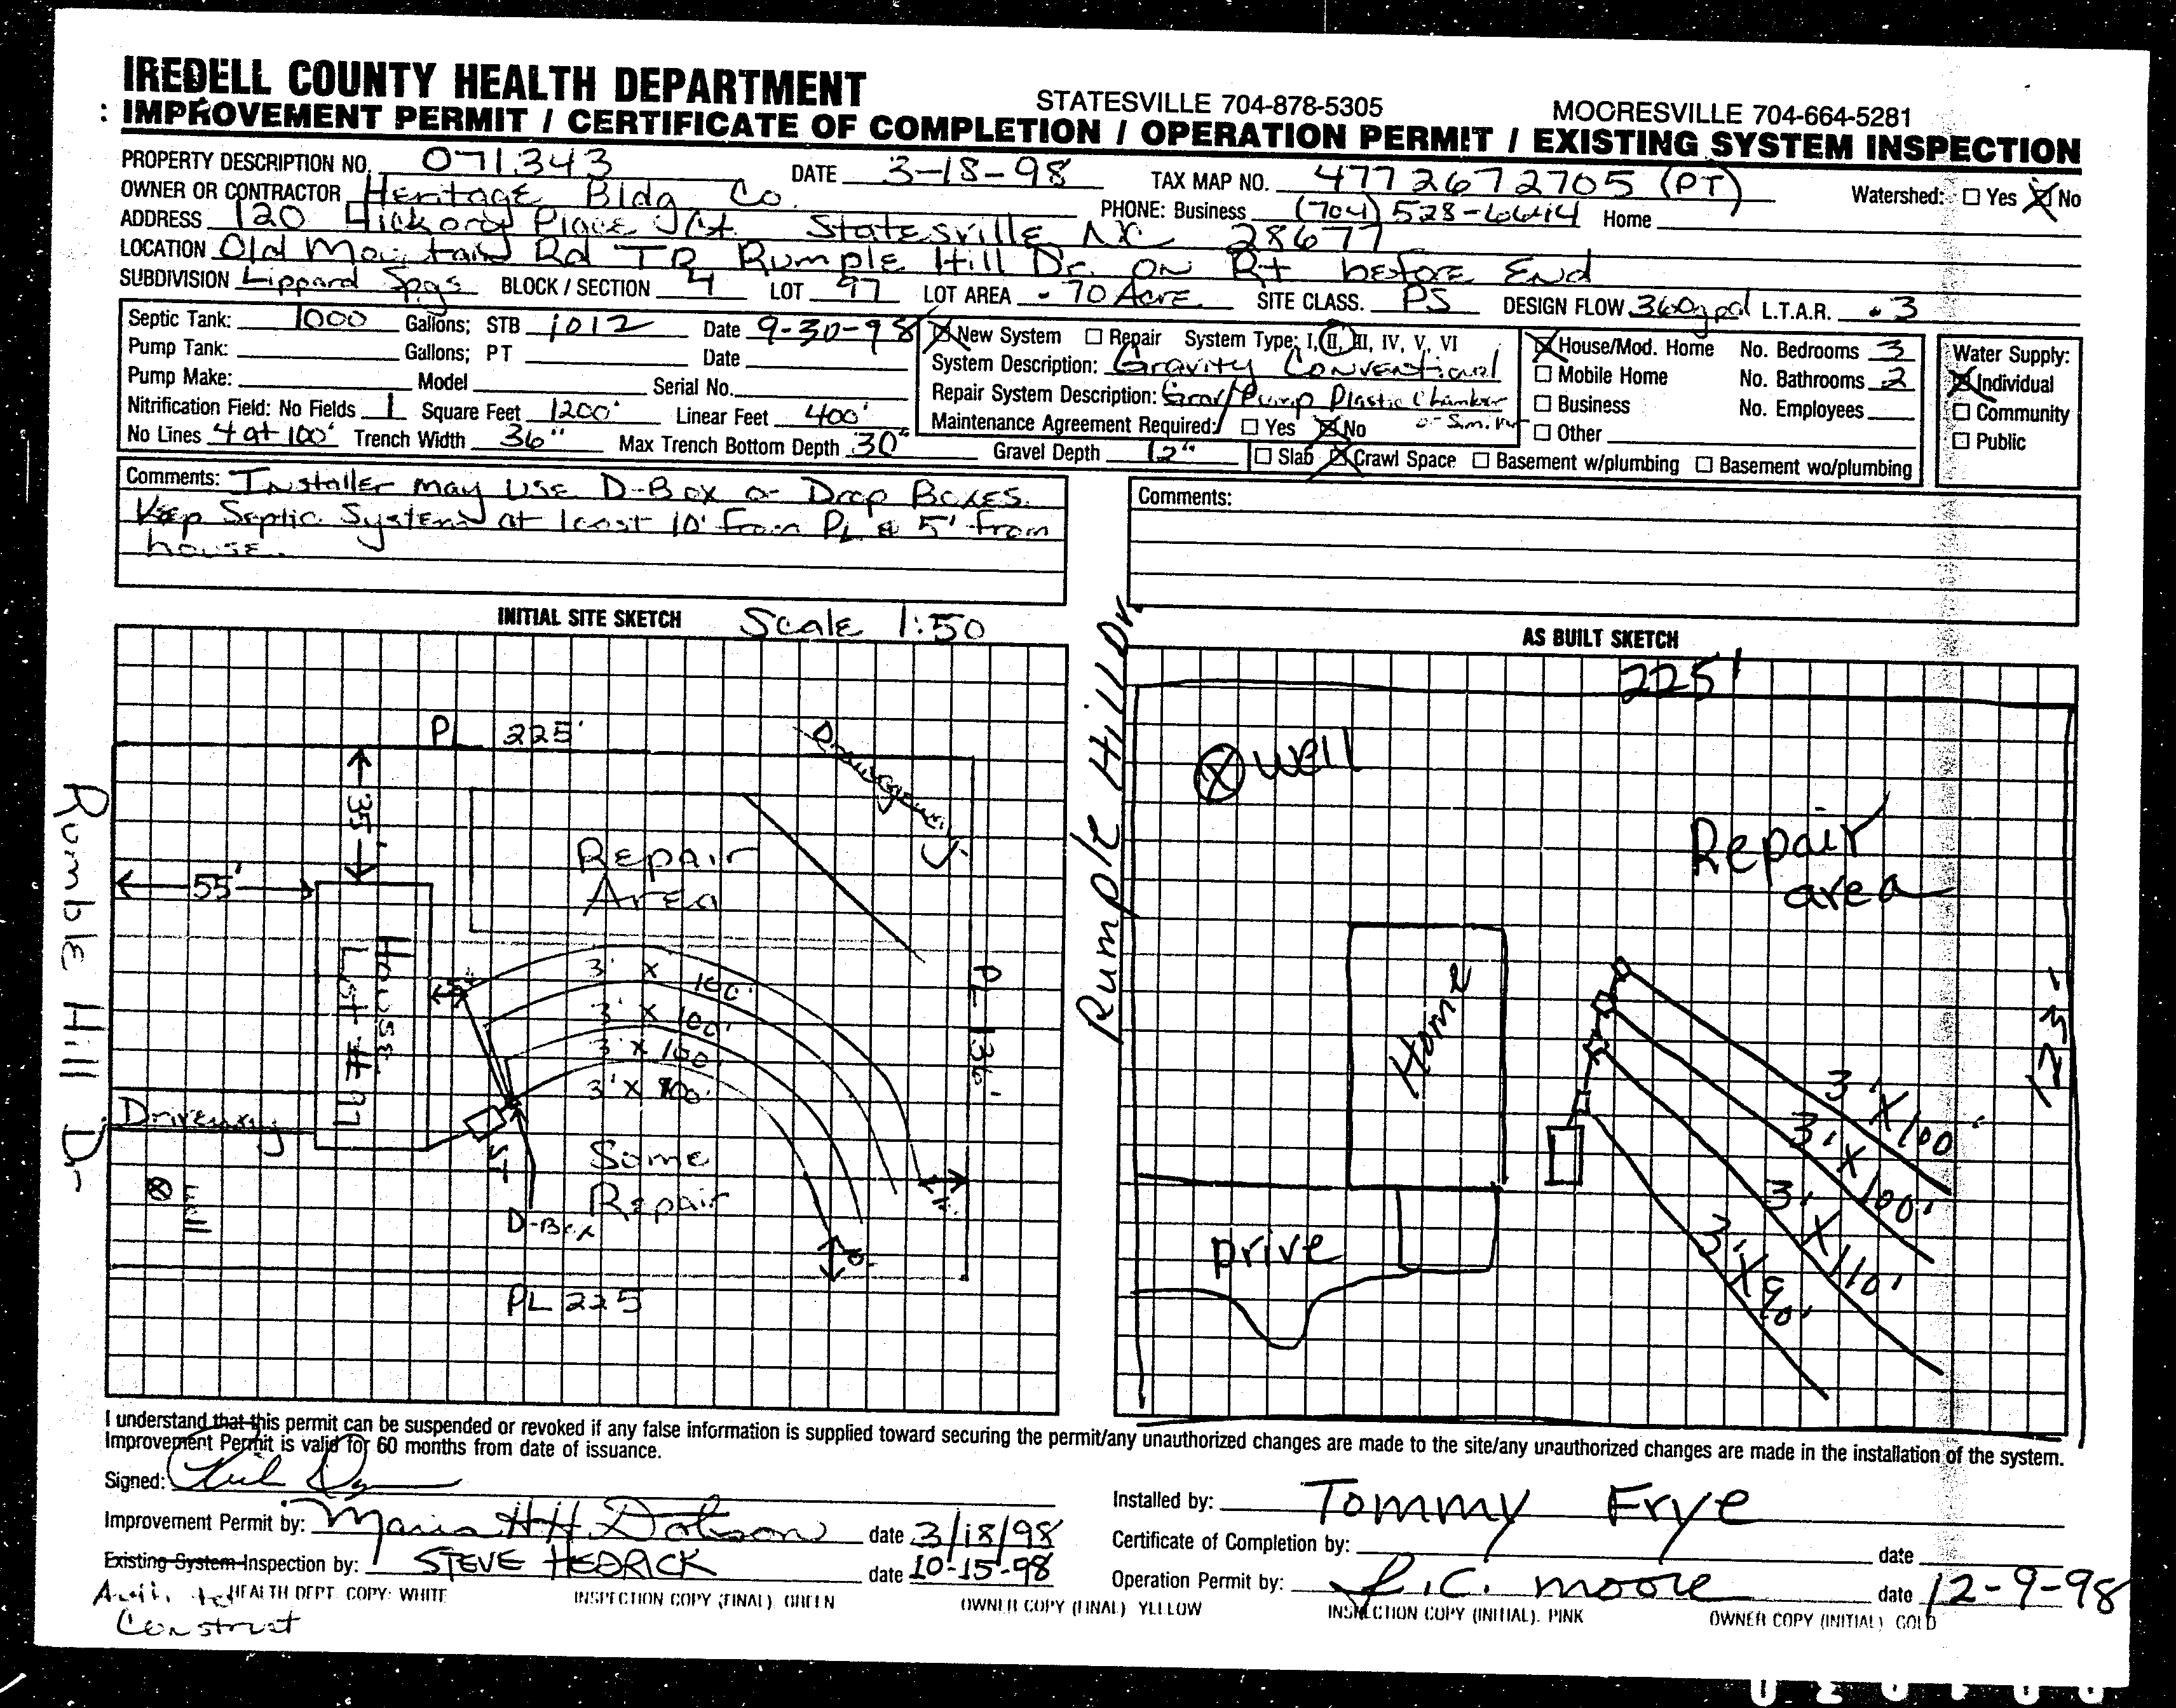 IREDELL COUNTY HEALTH DEPARTMENT
STATESVILLE 704-878-5305 MOORESVILLE 704-664-5281
IMPROVEMENT PERMIT / CERTIFICATE OF COMPLETION / OPERATION PERMIT / EXISTING SYSTEM INSPECTION
PROPERTY DESCRIPTION NO. 071343 DATE 3-18-98 TAX MAP NO. 4772672705 (PT) Watershed: Yes No
OWNER OR CONTRACTOR Heritage Bldg Co.
ADDRESS 120 Hickory Place Ct. Statesville NC 28677 PHONE: Business (704) 528-6644 Home
LOCATION Old Mountain Rd TR Rumple Hill Dr. on Rt before End
SUBDIVISION Lippard Spgs BLOCK / SECTION 4 LOT 97 LOT AREA .70 Acre SITE CLASS. PS DESIGN FLOW 360gpd L.T.A.R. .3
Septic Tank: 1000 Gallons; STB 1012 Date 9-30-98
Pump Tank: Gallons; PT Date
Pump Make: Model Serial No.
Nitrification Field: No Fields 1 Square Feet 1200' Linear Feet 400'
No Lines 4 at 100' Trench Width 36" Max Trench Bottom Depth 30" Gravel Depth 12"
New System Repair System Type: I, II, III, IV, V, VI
System Description: Gravity Conventional
Repair System Description: Grav/Pump Plastic Chamber
Maintenance Agreement Required: Yes No or Similar
House/Mod. Home No. Bedrooms 3
Mobile Home No. Bathrooms 2
Business No. Employees
Other
Slab Crawl Space Basement w/plumbing Basement wo/plumbing
Water Supply:
Individual
Community
Public
Comments: Installer may use D-Box or Drop Boxes.
Keep Septic System at least 10' from PL & 5' from
house.
Comments:
INITIAL SITE SKETCH Scale 1:50
PL 225'
35'
55'
Repair
Area
House
Lot #97
3' X 100'
3' X 100'
3' X 100'
3' X 100'
PL 136'
Driveway
ST
Some
Repair
D-Box
Well
PL 225
Rumple Hill Dr
AS BUILT SKETCH
225'
Rumple Hill Dr.
Well
Repair
area
Home
3' X 100'
3' X 100'
3' X 110'
3' X 90'
prive
I understand that this permit can be suspended or revoked if any false information is supplied toward securing the permit/any unauthorized changes are made to the site/any unauthorized changes are made in the installation of the system.
Improvement Permit is valid for 60 months from date of issuance.
Signed:
Improvement Permit by: Maria HH Dotson date 3/18/98
Existing System Inspection by: STEVE HEDRICK date 10-15-98
Auth. to
Construct
Installed by: Tommy Frye
Certificate of Completion by: date
Operation Permit by: R.C. Moore date 12-9-98
HEALTH DEPT. COPY: WHITE INSPECTION COPY (FINAL) GREEN OWNER COPY (FINAL) YELLOW INSPECTION COPY (INITIAL). PINK OWNER COPY (INITIAL) GOLD